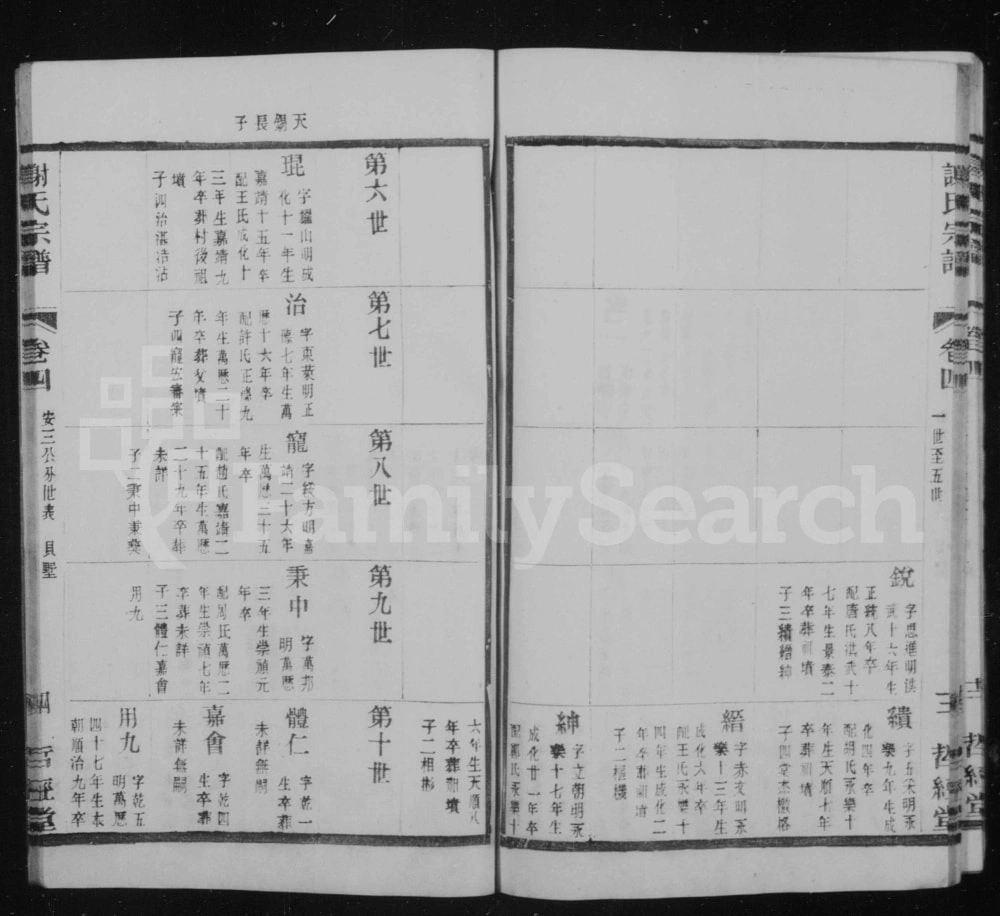 謝氏宗譜
卷四
一世至五世
三
哲經堂
銳
字思進明洪
武十六年生
正統八年卒
配唐氏洪武十
七年生景泰二
年卒葬祖墳
子三續縉紳
續
字五采明永
樂九年生成
化四年卒
配胡氏永樂十
年生天順七年
卒葬祖墳
縉
字赤友明永
樂十三年生
成化六年卒
配王氏永樂十
四年生成化二
年卒葬祖墳
紳
字立朝明永
樂十七年生
成化廿一年卒
配鄒氏永樂十
六年生天順八
年卒葬祖墳
子二相彬
天錫長子
第六世
琨
字耀山明成
化十一年生
嘉靖十五年卒
配王氏成化十
三年生嘉靖九
年卒葬村後祖
墳
子四治湛浩沾
第七世
治
字東萊明正
德七年生萬
曆十六年卒
配許氏正德九
年生萬曆二十
年卒葬父墳
第八世
寵
字綏方明嘉
靖二十六年
生萬曆三十五
年卒
配趙氏嘉靖二
十五年生萬曆
二十九年卒葬
未詳
子二秉中秉奕
第九世
秉中
字萬邦
明萬曆
三年生崇禎元
年卒
配周氏萬曆二
年生崇禎七年
卒葬未詳
子三體仁嘉會
用九
第十世
體仁
字乾一
生卒葬
未詳無嗣
嘉會
字乾四
生卒葬
未詳無嗣
用九
字乾五
明萬曆
四十七年生本
朝順治九年卒
謝氏宗譜
卷四
安三公分世表
貝墅
四
哲經堂